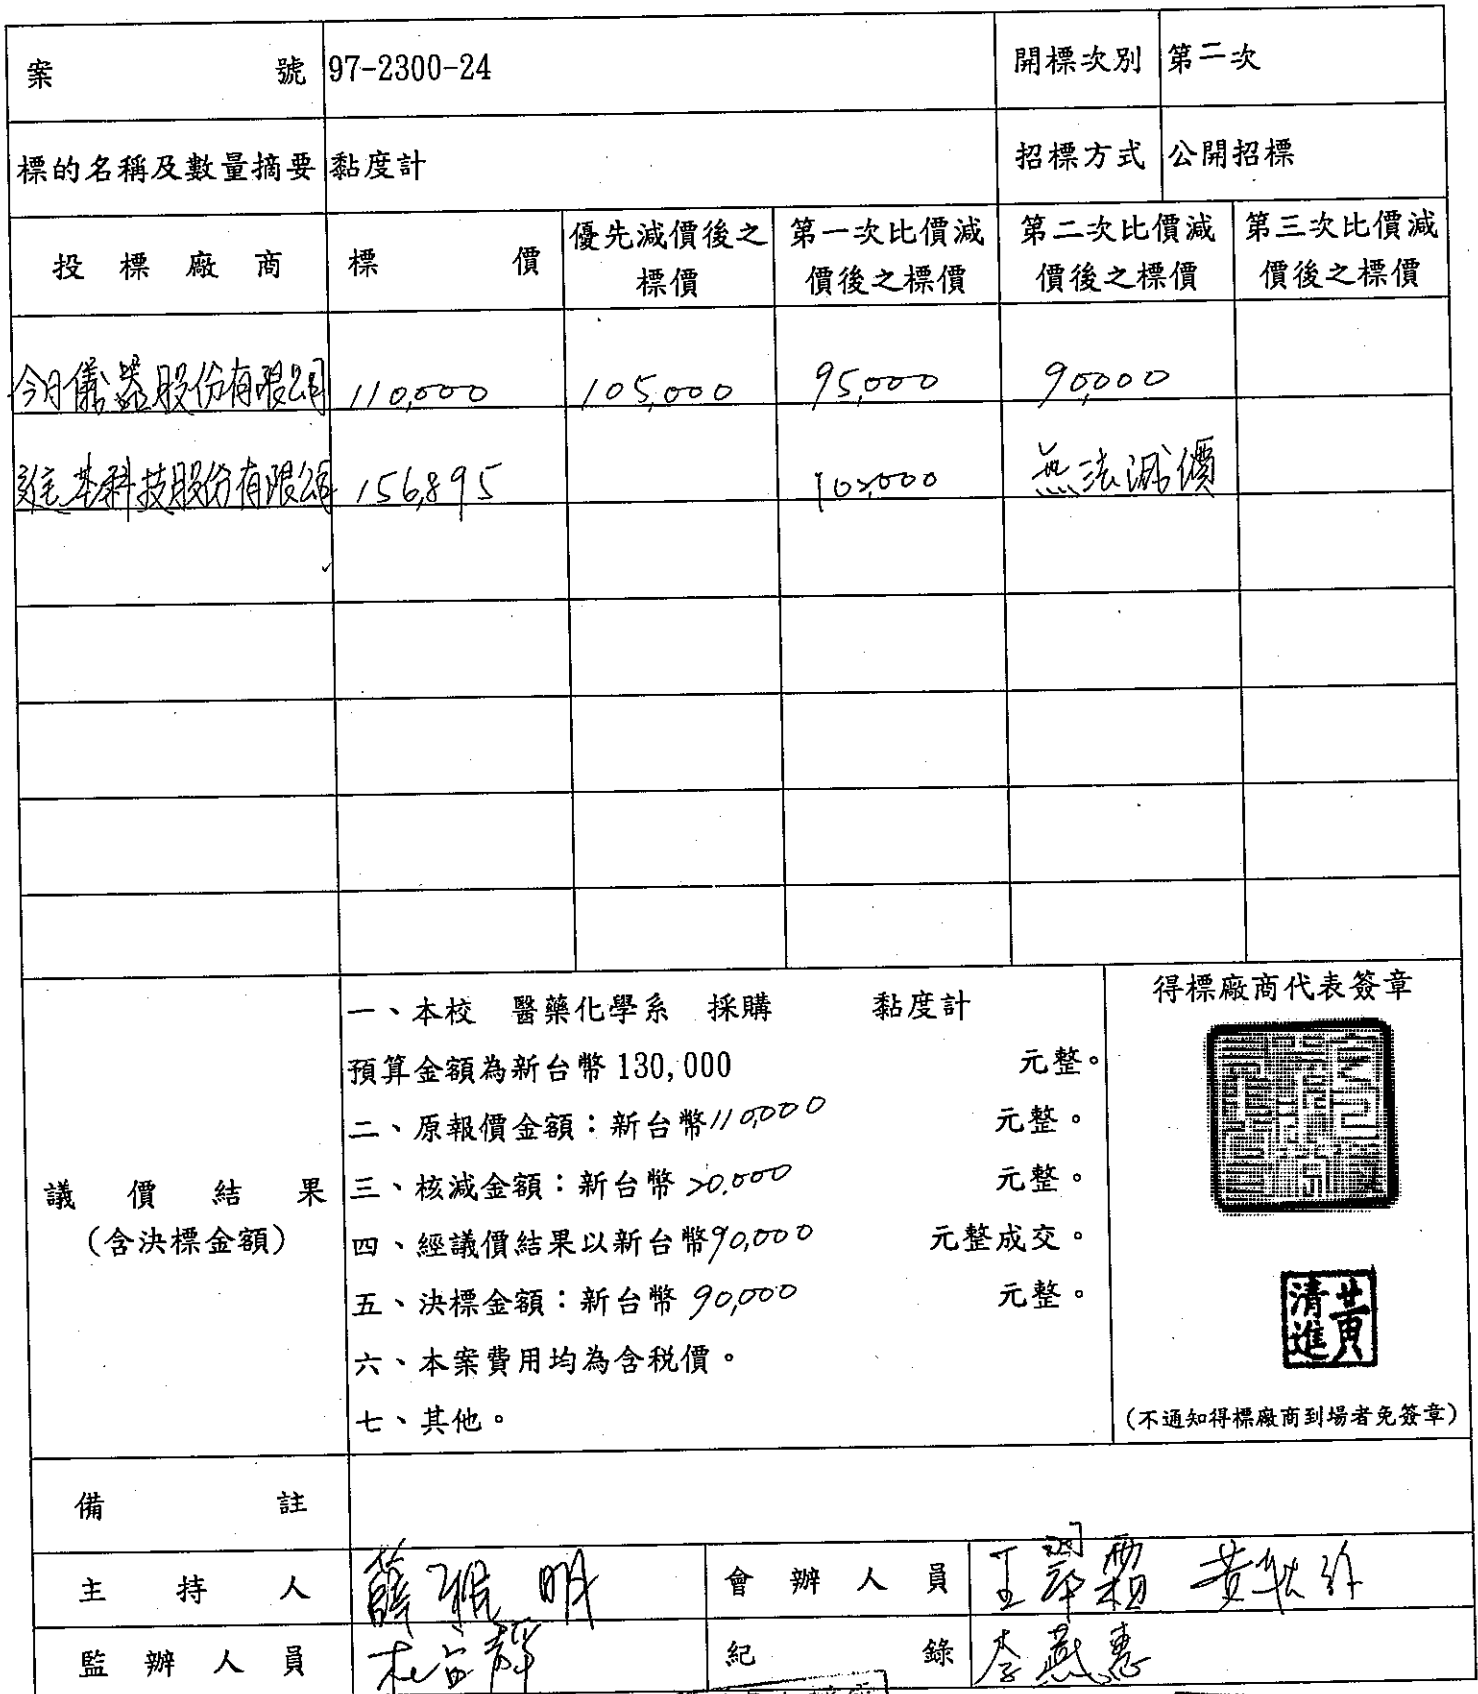 案號 97-2300-24 開標次別 第二次
標的名稱及數量摘要 黏度計 招標方式 公開招標
投標廠商 標價 優先減價後之標價 第一次比價減價後之標價 第二次比價減價後之標價 第三次比價減價後之標價
今日儀器股份有限公司 110,000 105,000 95,000 90,000
基科技股份有限公司 156,895 102,000 無法減價
一、本校 醫藥化學系 採購 黏度計
預算金額為新台幣 130,000 元整。
二、原報價金額：新台幣 110,000 元整。
三、核減金額：新台幣 20,000 元整。
四、經議價結果以新台幣 90,000 元整成交。
五、決標金額：新台幣 90,000 元整。
六、本案費用均為含稅價。
七、其他。
議價結果
（含決標金額）
得標廠商代表簽章
黃清進
（不通知得標廠商到場者免簽章）
備註
主持人 薛雅明 會辦人員
監辦人員 紀錄 李燕惠